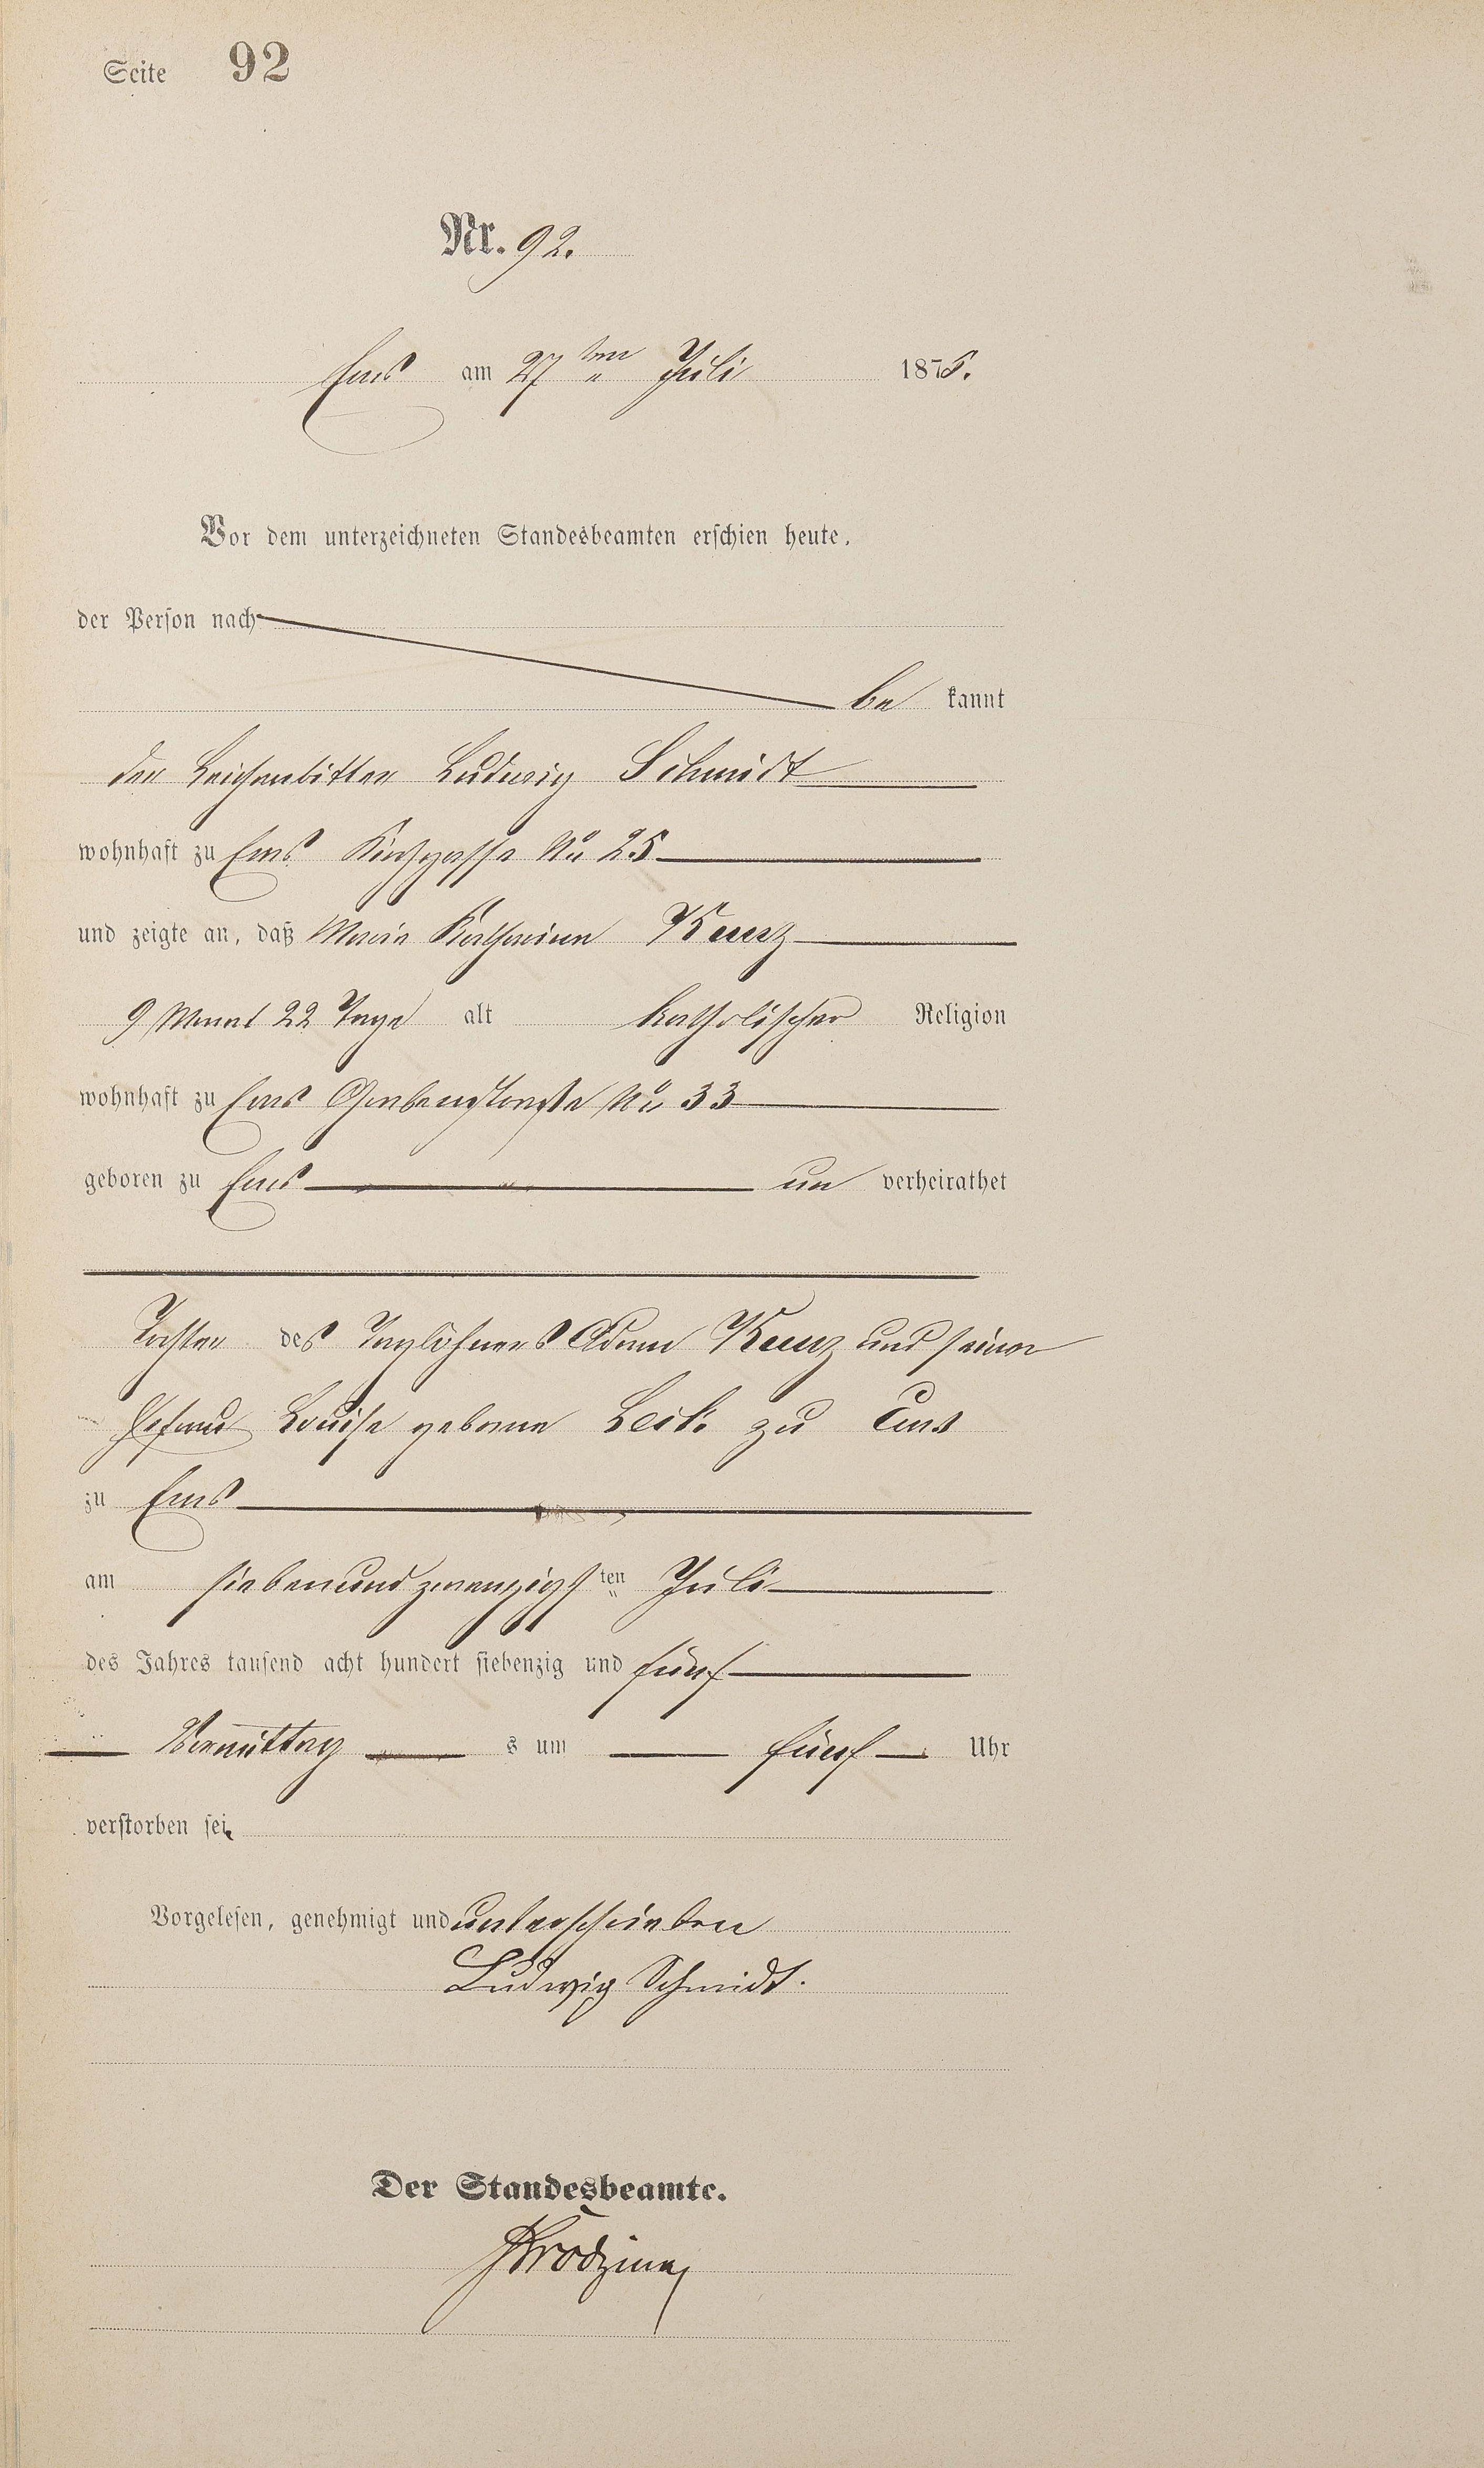 Seite 92
Nr. 92.
Ems am 27ten Juli 1875.
Vor dem unterzeichneten Standesbeamten erschien heute,
der Person nach
be kannt
der Leichenbitter Ludwig Schmidt
wohnhaft zu Ems Kirchgasse No 25
und zeigte an, daß Maria Katharina Kunz
9 Monat 22 Tage alt katholischer Religion
wohnhaft zu Ems No 33
geboren zu Ems un verheirathet
Tochter des Taglöhners Adam Kunz und seiner
Ehefrau Louise geborne zu Ems
zu Ems
am siebenundzwanzigsten Juli
des Jahres tausend acht hundert siebenzig und fünf
Vormittag s um fünf Uhr
verstorben sei.
Vorgelesen, genehmigt und unterschrieben
Ludwig Schmidt.
Der Standesbeamte.